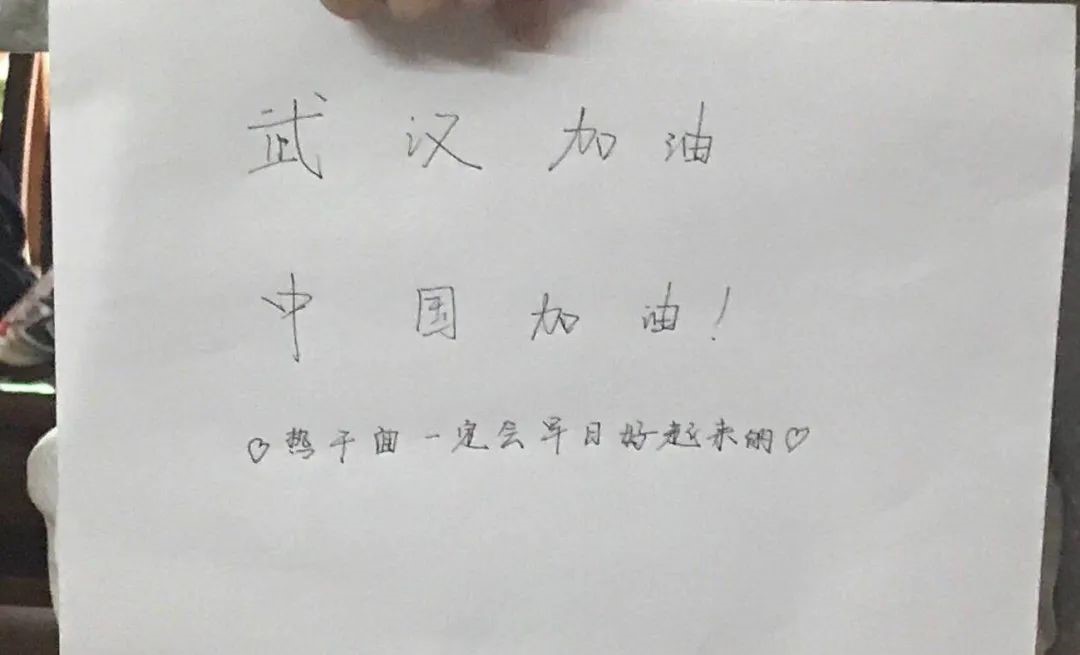 武汉加油
中国加油！
♡热干面一定会早日好起来的♡